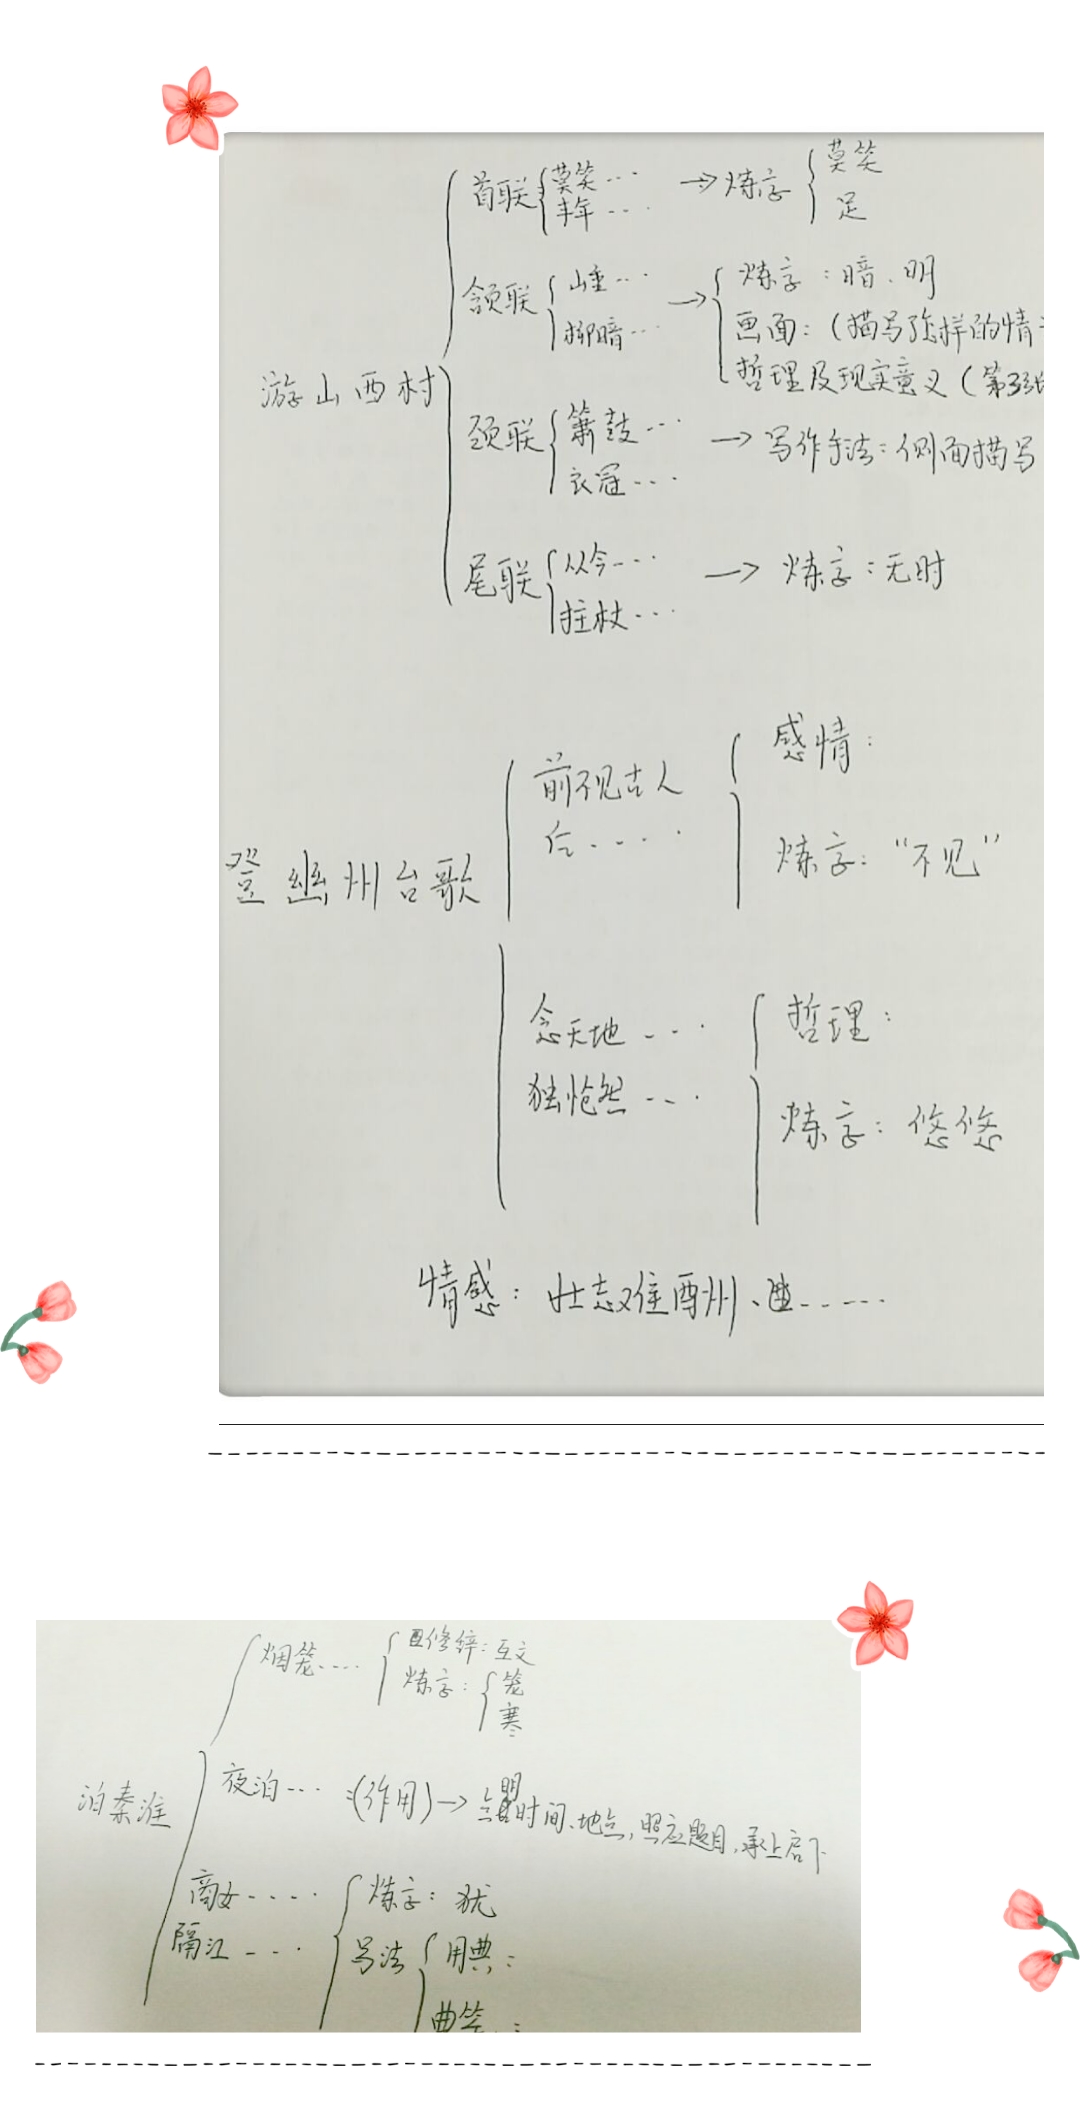 首联 莫笑… → 炼字 莫笑
丰年… 足
颔联 山重… → 炼字：暗、明
柳暗… 画面：（描写了怎样的情
哲理及现实意义（第
游山西村
颈联 箫鼓… → 写作手法：侧面描写
衣冠…
尾联 从今… → 炼字：无时
拄杖…
前不见古人 感情：
后…… 炼字：“不见”
登幽州台歌
念天地… 哲理：
独怆然… 炼字：悠悠
情感：壮志难酬
烟笼…. 修辞：互文
炼字：笼
寒
泊秦淮
夜泊… ：(作用)→ 点明时间、地点，照应题目，承上启下
商女…. 炼字：犹
隔江… 写法 用典：
曲笔：